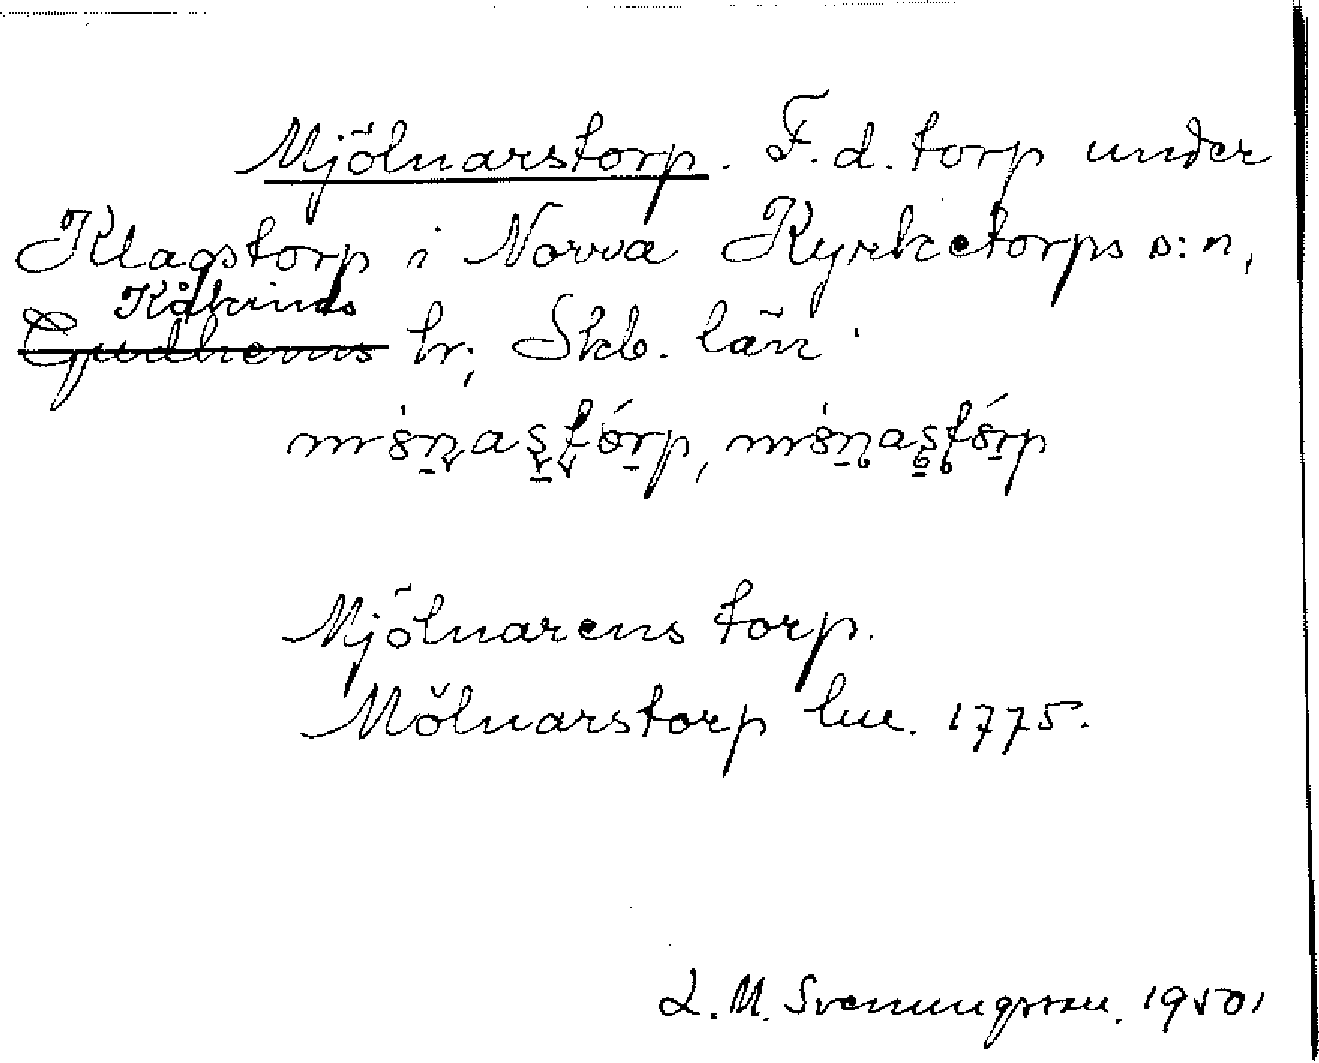 Mjölnarstorp. F.d. torp under
Klagstorp i Norra Kyrketorps s:n,
Kåkinds
Gudhems hr; Skb. län
Mjölnarens torp.
Mölnarstorp lm. 1775.
L. M. Svenungsson. 1950